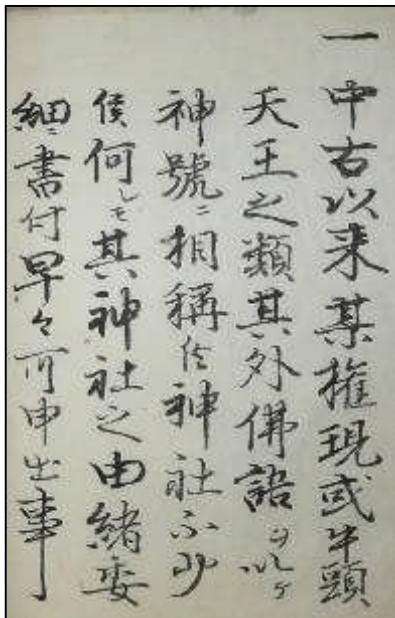 一中古以来某権現或牛頭
天王之類其外佛語ヲ以テ
神號ニ相稱候神社不少
候何レモ其神社之由緒委
細ニ書付早々可申出事